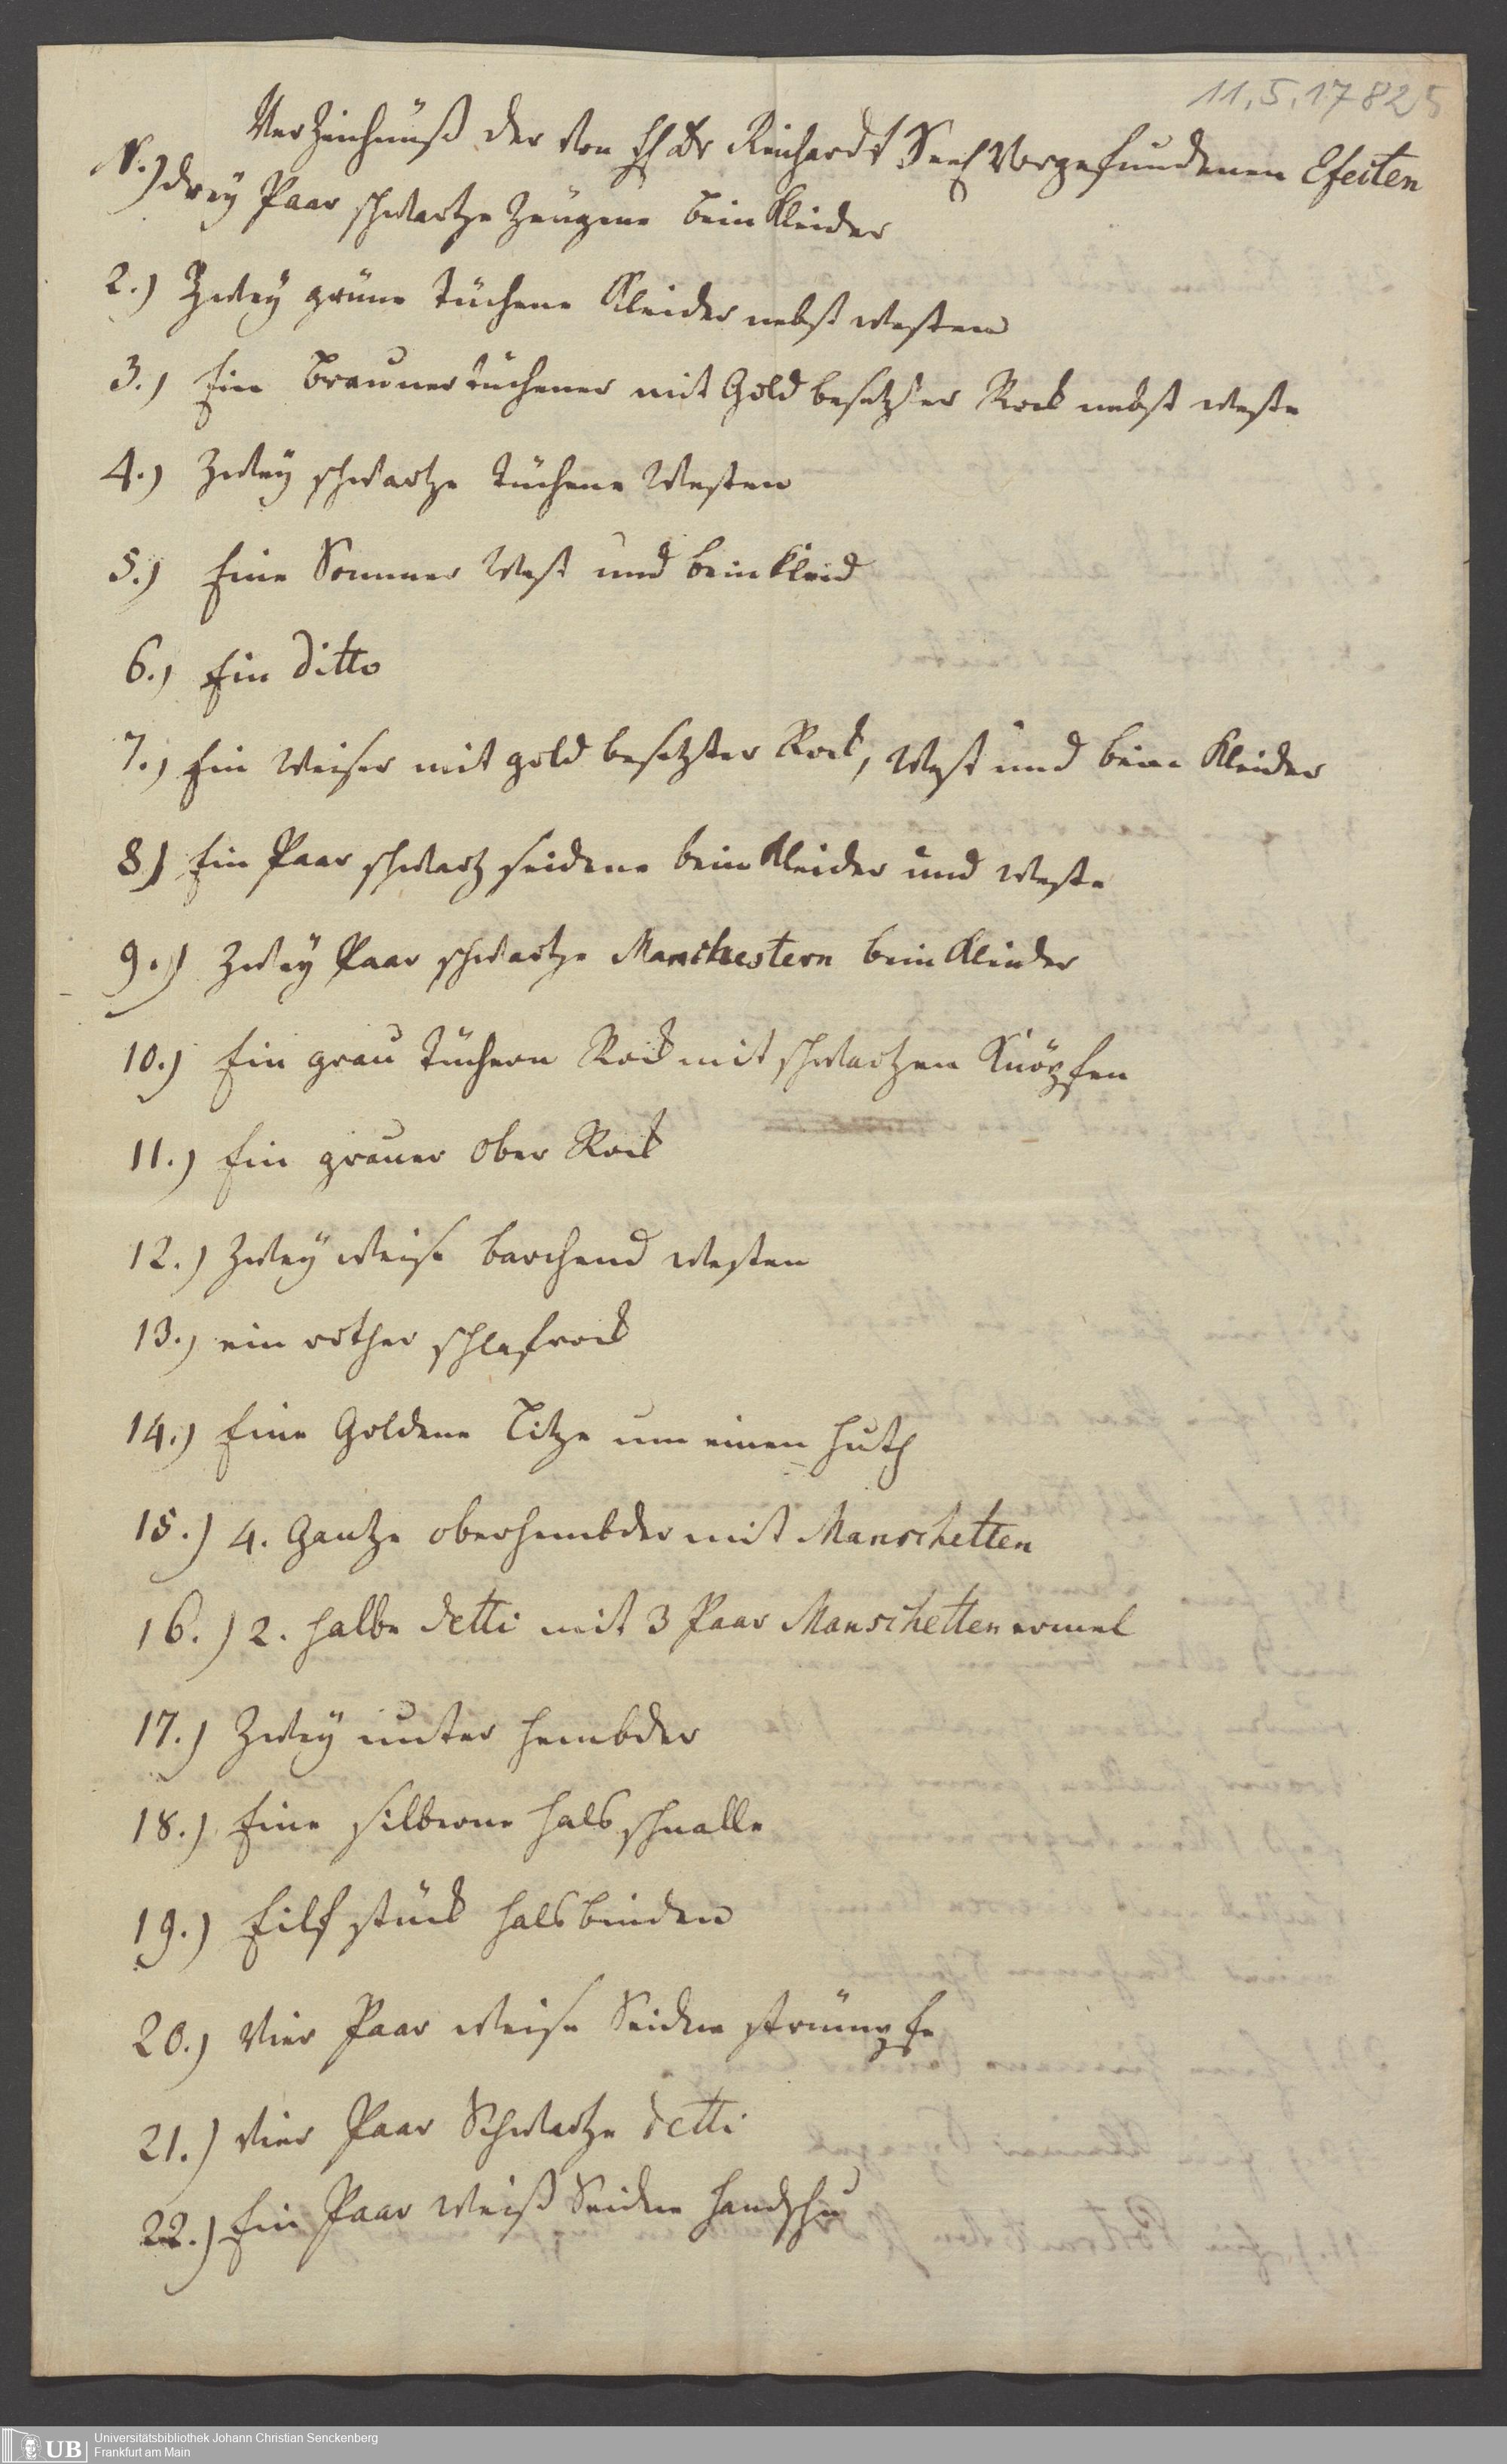 11.5.1782 5
Verzeichnüß der von H Dr Reichardt Seel Vorgefundenen Efecten
N. 1) drey Paar schwartze Zeugene beinKleider
2.) Zwey grüne tüchene Kleider nebst westen
3.) Ein brauner tüchener mit Gold besetzter Rock nebst weste
4.) Zwey schwartze tüchene Westen
5.) Eine Sommer West und beinkleid
6.) Ein ditto
7.) Ein Weiser mit gold besetzter Rock, West und bein Kleider
8.) Ein Paar schwartz seidene beinKleider und weste
9.) Zwey Paar schwartze Manchestern beinKleider
10.) Ein grau tüchern Rock mit schwartzen Knöpfen
11.) Ein grauer ober Rock
12.) Zwey weise barchend westen
13.) ein rother schlafrock
14.) Eine Goldene Litze um einen Huth
15.) 4. Gantze oberhembder mit Manschetten
16.) 2. halbe detti mit 3 Paar Manschetten ermel
17.) Zwey unter hembder
18.) Eine silberne halsschnalle
19.) Eilf stück halsbinden
20.) Vier Paar weise Seidne strümpfe
21.) Vier Paar Schwartze detti
22.) Ein Paar Weiß Seidne handschu
UB
Universitätsbibliothek Johann Christian Senckenberg
Frankfurt am Main